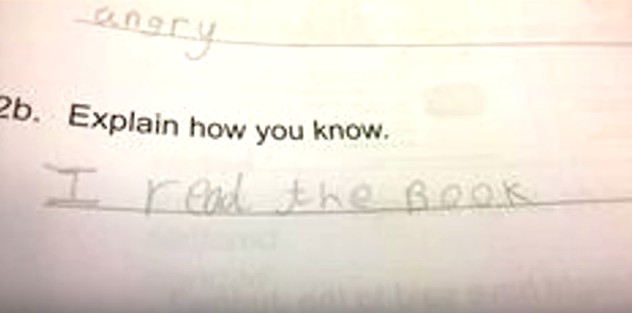 angry
2b. Explain how you know.
I read the BOOK